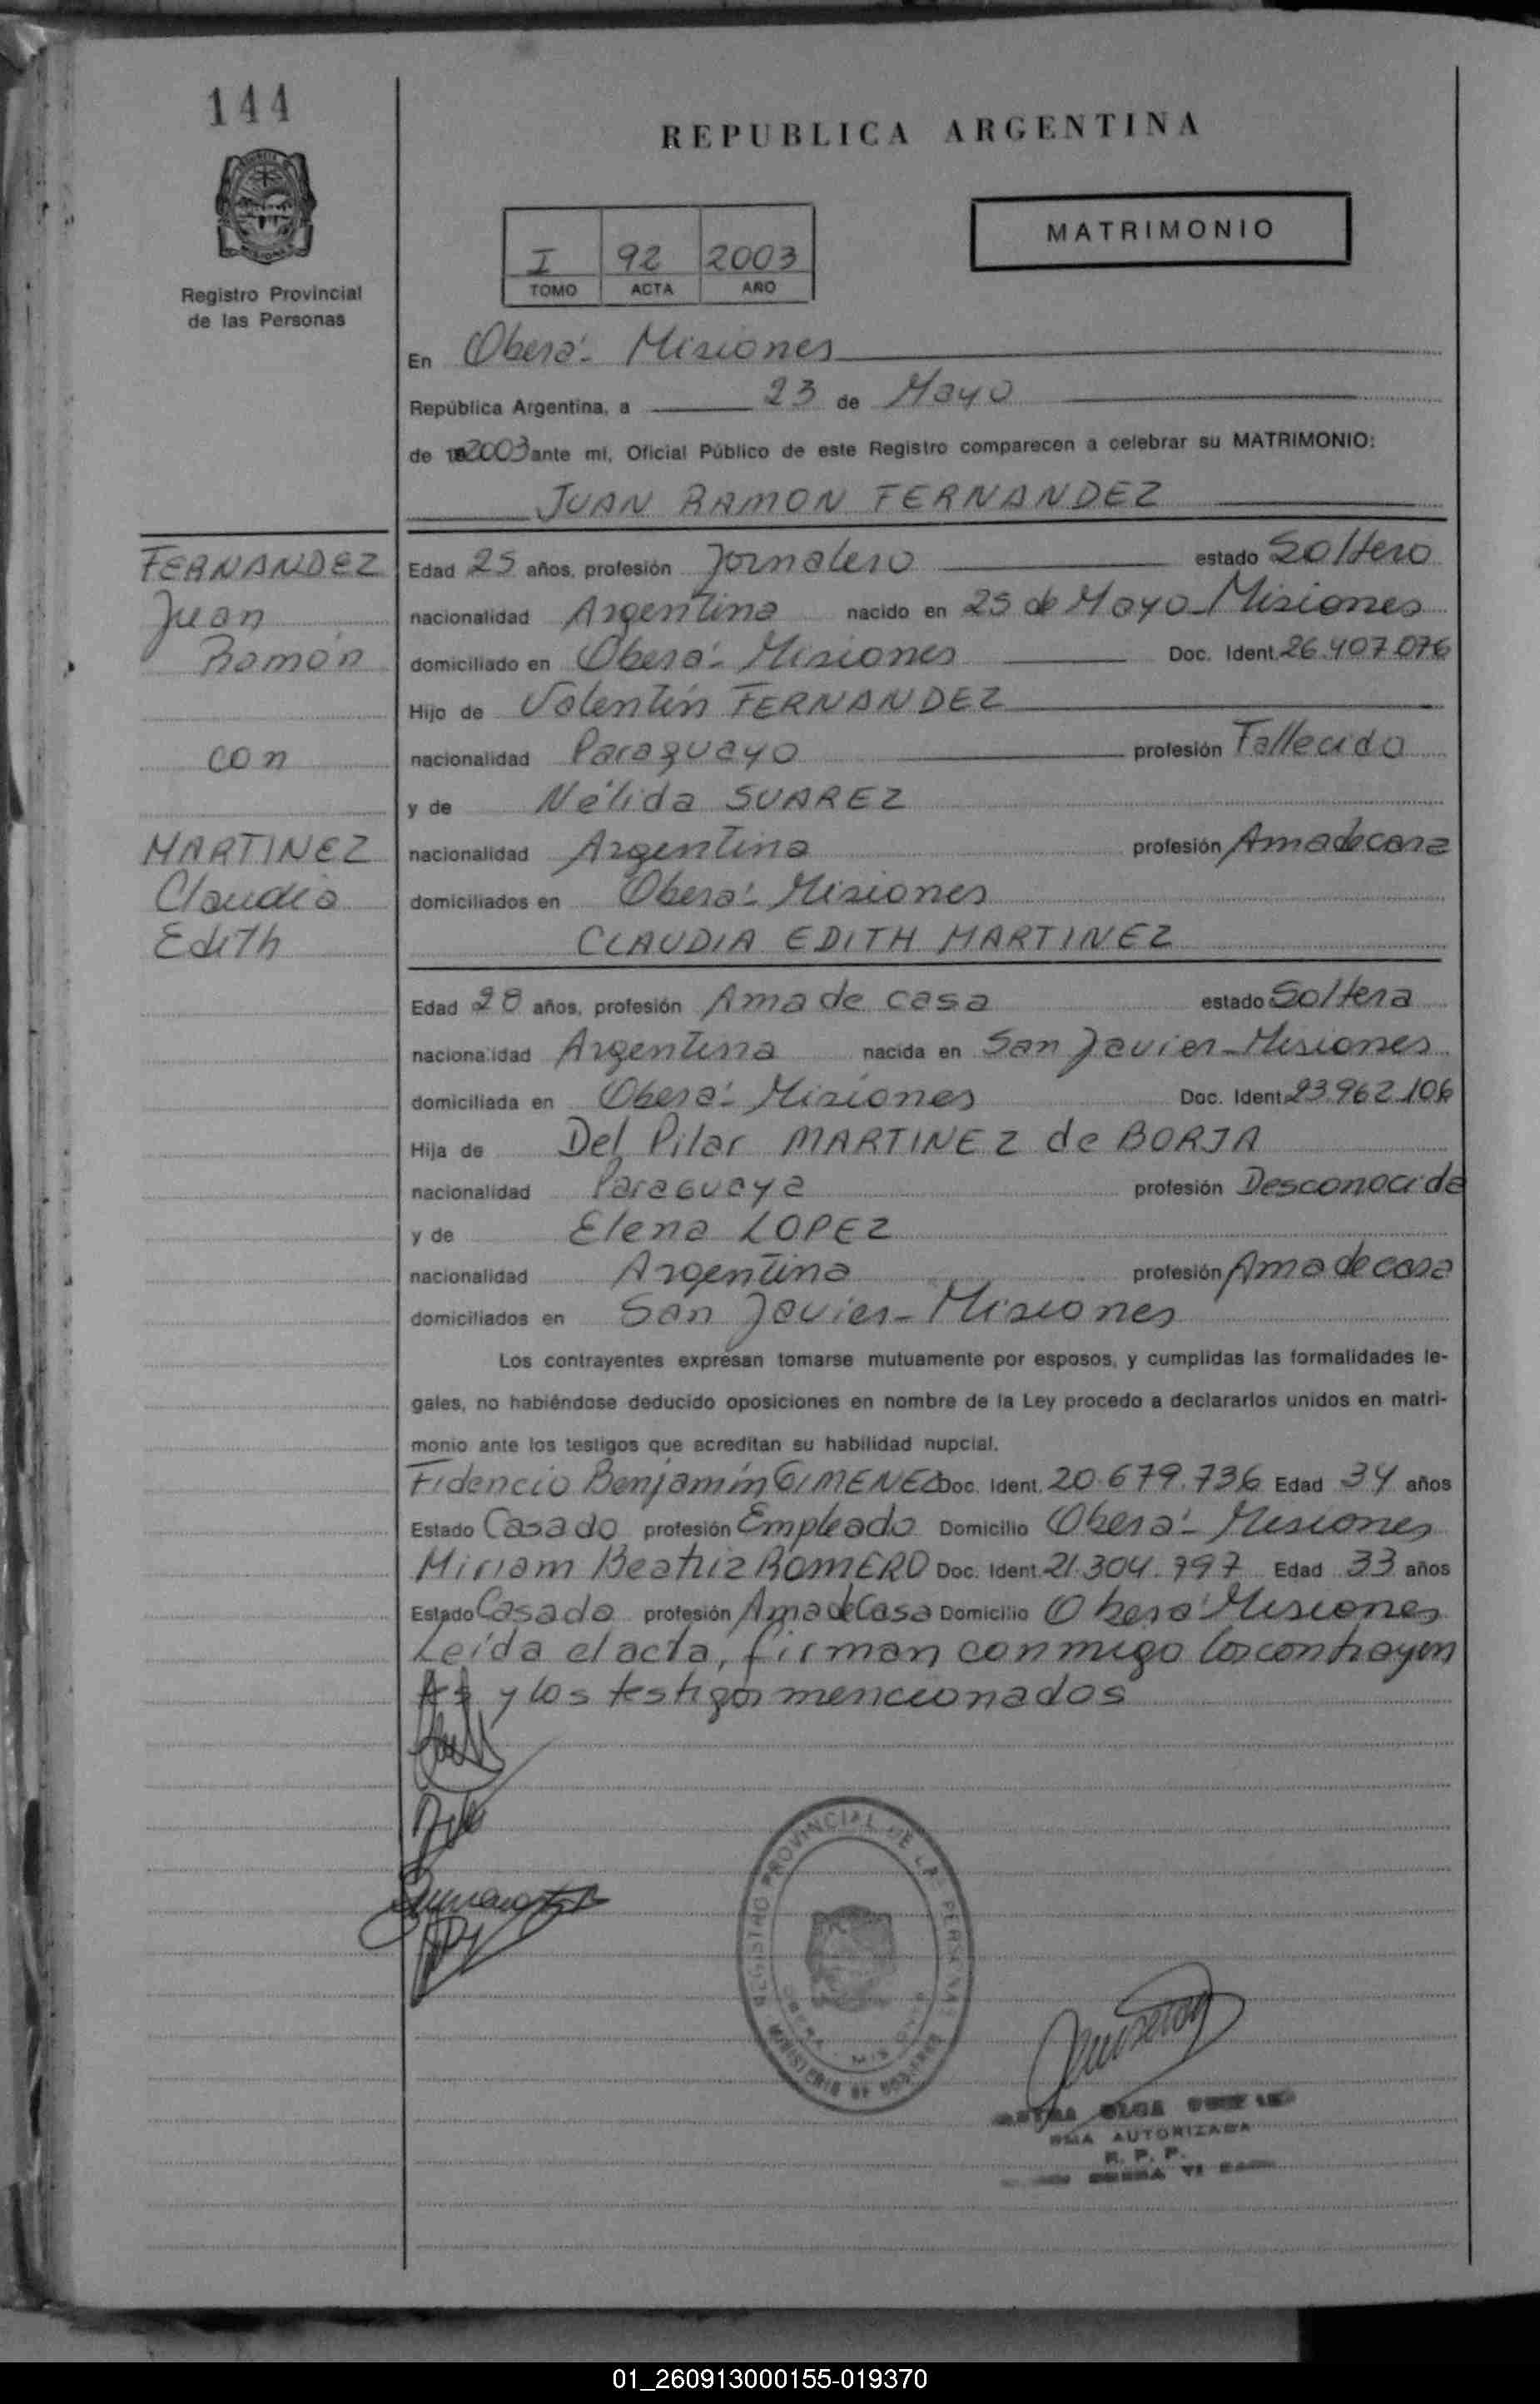 144
REPUBLICA ARGENTINA
MATRIMONIO
I 92 2003
TOMO ACTA AÑO
Registro Provincial
de las Personas
En Oberá - Misiones
República Argentina, a 23 de Mayo
de 2003 ante mí, Oficial Público de este Registro comparecen a celebrar su MATRIMONIO:
JUAN RAMON FERNANDEZ
FERNANDEZ
Juan
Ramón
con
MARTINEZ
Claudia
Edith
Edad 25 años, profesión Jornalero estado Soltero
nacionalidad Argentina nacido en 25 de Mayo - Misiones
domiciliado en Oberá - Misiones Doc. Ident. 26.407.076
Hijo de Valentín FERNANDEZ
nacionalidad Paraguayo profesión Fallecido
y de Nélida SUAREZ
nacionalidad Argentina profesión Ama de casa
domiciliados en Oberá - Misiones
CLAUDIA EDITH MARTINEZ
Edad 28 años, profesión Ama de casa estado Soltera
nacionalidad Argentina nacida en San Javier - Misiones
domiciliada en Oberá - Misiones Doc. Ident. 23.962.106
Hija de Del Pilar MARTINEZ de BORJA
nacionalidad Paraguaya profesión Desconocida
y de Elena LOPEZ
nacionalidad Argentina profesión Ama de casa
domiciliados en San Javier - Misiones
Los contrayentes expresan tomarse mutuamente por esposos, y cumplidas las formalidades le-
gales, no habiéndose deducido oposiciones en nombre de la Ley procedo a declararlos unidos en matri-
monio ante los testigos que acreditan su habilidad nupcial.
Fidencio Benjamín GIMENEZ Doc. Ident. 20.679.736 Edad 34 años
Estado Casado profesión Empleado Domicilio Oberá - Misiones
Miriam Beatriz ROMERO Doc. Ident. 21.304.797 Edad 33 años
Estado Casada profesión Ama de Casa Domicilio Oberá Misiones
Leída el acta, firman conmigo los contrayen
tes y los testigos mencionados
REGISTRO PROVINCIAL DE LAS PERSONAS
MINISTERIO DE GOBIERNO
OLGA
AUTORIZADA
R. P. P.
01_260913000155-019370